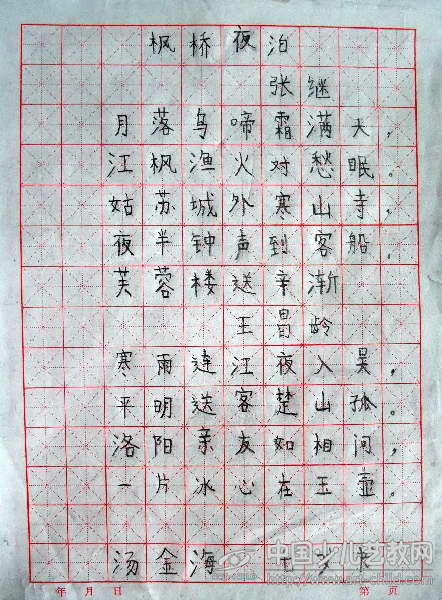 枫桥夜泊
张继
月落乌啼霜满天，
江枫渔火对愁眠。
姑苏城外寒山寺，
夜半钟声到客船。
芙蓉楼送辛渐
王昌龄
寒雨连江夜入吴，
平明送客楚山孤。
洛阳亲友如相问，
一片冰心在玉壶。
汤金海
中国少儿艺教网
年 月 日 第 页